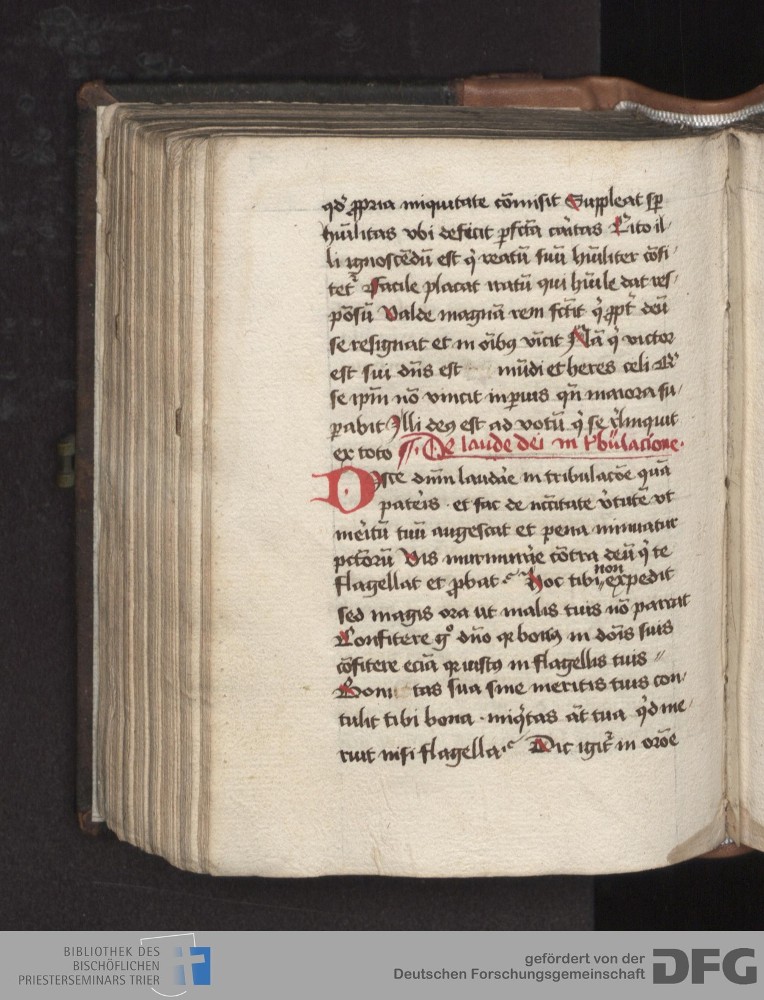 qd̛ ꝓpria iniquitate cōmisit Suppleat sp̄
hūilitas vbi deficit ꝑfc̄ta cāitas Cito il-
li ignoscēdū est q̇ reatū suū hūiliter cōfi-
tet᷑ Facile placat iratū qui hūile dat res-
pōsū Valde magnā rem fēcit q̇ ꝓpt̄ deū
se resignat et in oīb9 vīcit Nā q̇ victor
est sui dn̄s est mūdi et heres celi
se ip̄m nō vincit in ꝑuis qn̄ maiora su-
ꝑabit Illi de9 est ad votū q̇ se relinquit
ex toto ¶ De laude dei in t̄bulacione.
Disce dn̄m laudāe in tribulacōe quā
patēis et fac de nc̄citate v̄tutē vt
mēitū tuū augescat et pena minuatur
pctōrū Vis murmurāe cōtra deū q̇ te
flagellat et ꝓbat Hoc tibi non expedit
sed magis ora ut malis tuis nō parcat
Confitere gͦ dn̄o qꝛ bon9 in dōis suis
cōfitere eciā qꝛ iust9 in flagellis tuis
Boni tas sua sine meritis tuis con-
tulit tibi bona miq̇tas āt tua q̇d me-
ruit nisi flagella Dic igit᷑ in orōe
BIBLIOTHEK DES
BISCHÖFLICHEN
PRIESTERSEMINARS TRIER
gefördert von der
Deutschen Forschungsgemeinschaft
DFG